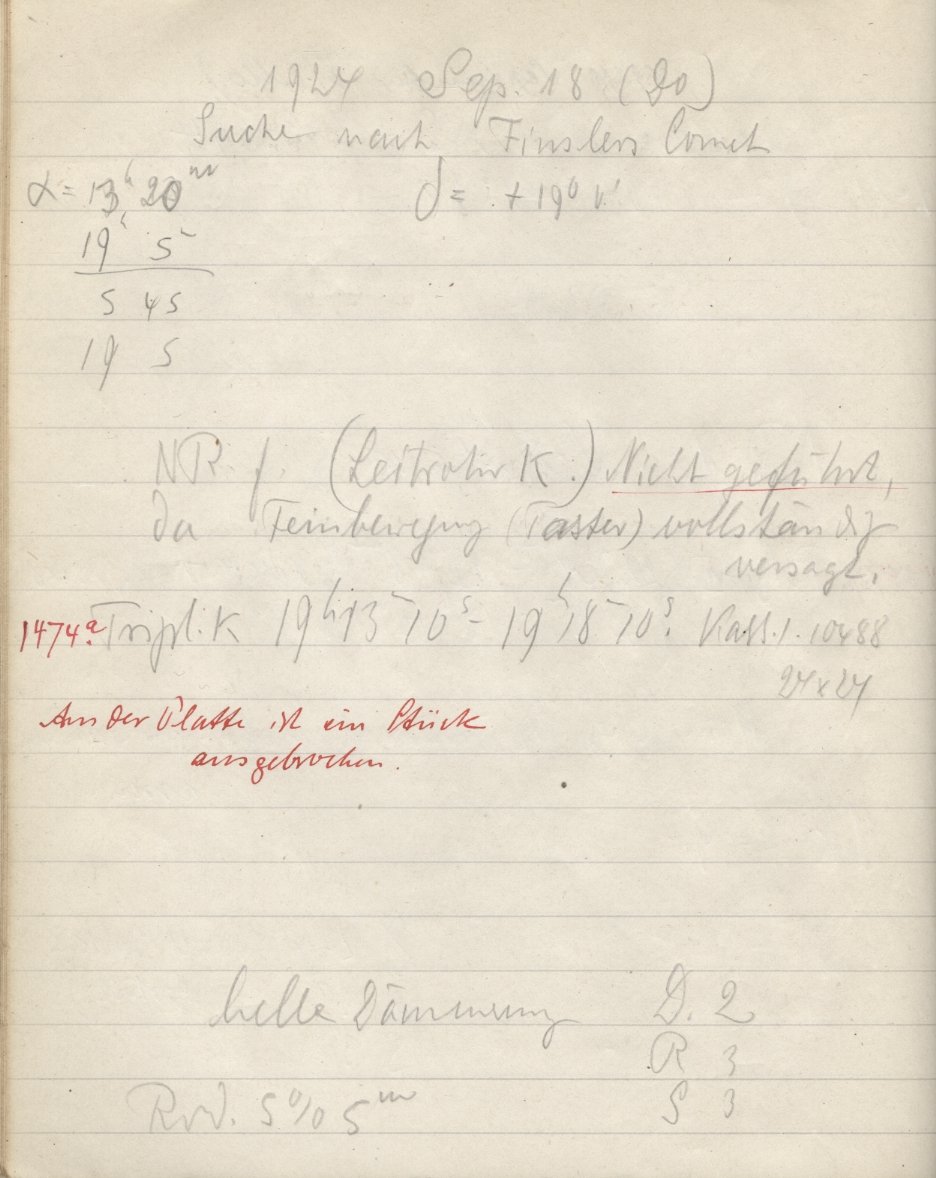 1924 Sep. 18 (Do)
Suche nach Finslers Comet
α = 13ʰ 20ᵐ δ = + 19°
19ʰ 5
5 45
19 5
NR. f. (Leitrohr K.) Nicht geführt,
da Feinbewegung (Taster) vollständig
versagt.
1474a Tripl. K 19ʰ 13ᵐ 10ˢ - 19ʰ 18ᵐ 10ˢ. Kass. 1. 10488
24x24
Aus der Platte ist ein Stück
ausgebrochen.
helle Dämmerung D. 2
R 3
S 3
5ᵐ